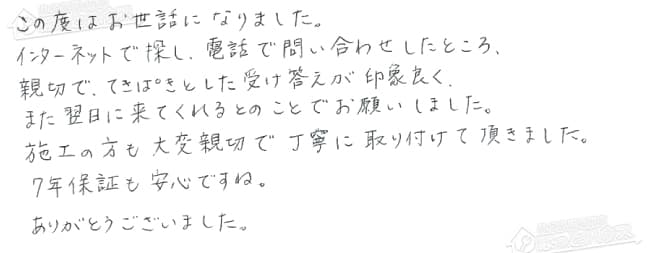 この度はお世話になりました。
インターネットで探し、電話で問い合わせしたところ、
親切で、てきぱきとした受け答えが印象良く、
また翌日に来てくれるとのことでお願いしました。
施工の方も大変親切で丁寧に取り付けて頂きました。
7年保証も安心ですね。
ありがとうございました。